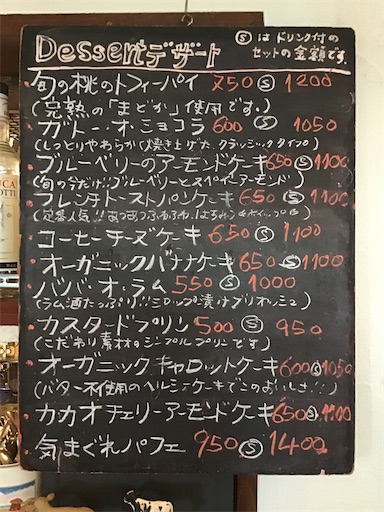 Dessertデザート
Ⓢは ドリンク付の
セットの金額です。
旬の桃のトフィーパイ 750 Ⓢ 1200
(完熟の「まどか」使用です。)
ガトー・オ・ショコラ 600 Ⓢ 1050
(しっとりやわらかく焼き上げた クラシックタイプ)
ブルーベリーのアーモンドケーキ 650 Ⓢ 1100
(旬の今だけ!!ブルーベリーとスペインアーモンド)
フレンチトーストパンケーキ 650 Ⓢ 1100
コーヒーチーズケーキ 650 Ⓢ 1100
オーガニックバナナケーキ 650 Ⓢ 1100
ババ・オ・ラム 550 Ⓢ 1000
(ラム酒たっぷり!!シロップ漬けブリオッシュ)
カスタードプリン 500 Ⓢ 950
(こだわり素材のシンプルプリンです)
オーガニック キャロットケーキ 600 Ⓢ 1050
(バター不使用のヘルシーケーキでこのおいしさ!!)
カカオチェリーアーモンドケーキ 650 Ⓢ 1100
気まぐれパフェ 950 Ⓢ 1400